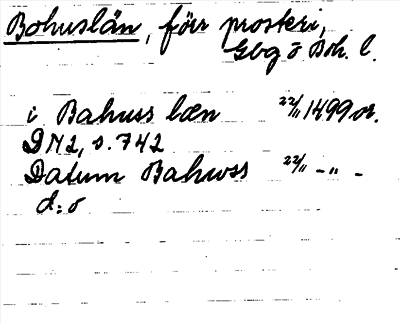 Bohuslän, förr prosteri,
Gbg o Boh. l.
i Bahuss læn 22/11 1499 or.
DN 2, s. 742
Datum Bahwss 22/11 -"-
d:o